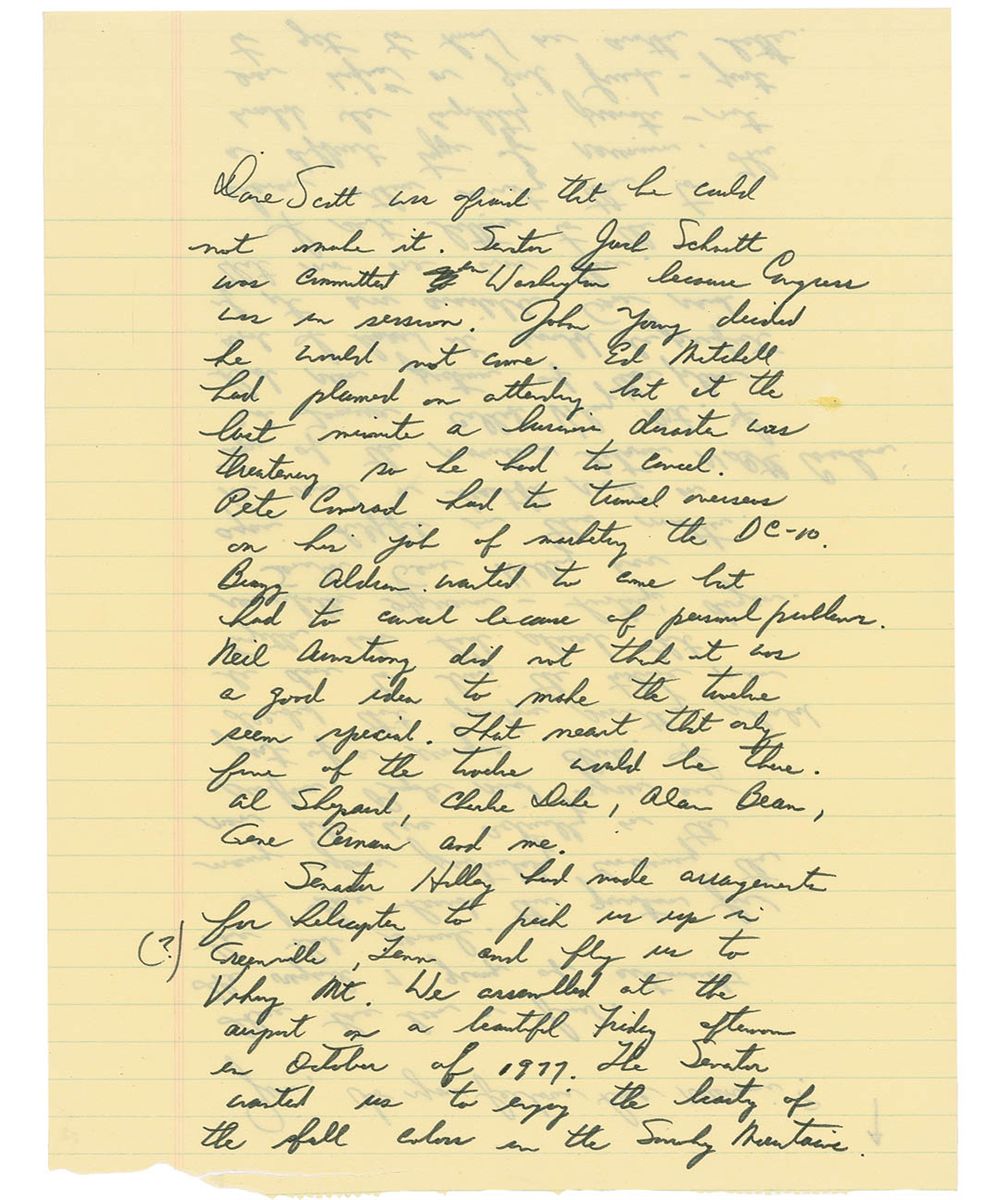 Dave Scott was afraid that he could
not make it. Senator Jack Schmitt
was committed in Washington because Congress
was in session. John Young decided
he would not come. Ed Mitchell
had planned on attending but at the
last minute a business disaster was
threatening so he had to cancel.
Pete Conrad had to travel overseas
on his job of marketing the DC-10.
Buzz Aldrin wanted to come but
had to cancel because of personal problems.
Neil Armstrong did not think it was
a good idea to make the twelve
seem special. That meant that only
five of the twelve would be there.
Al Shepard, Charlie Duke, Alan Bean,
Gene Cernan and me.
Senator Hilley had made arrangements
for helicopter to pick us up in
(?) Greenville, Tenn and fly us to
Viking Mt. We assembled at the
airport on a beautiful Friday afternoon
in October of 1977. The Senator
wanted us to enjoy the beauty of
the fall colors in the Smoky Mountains.